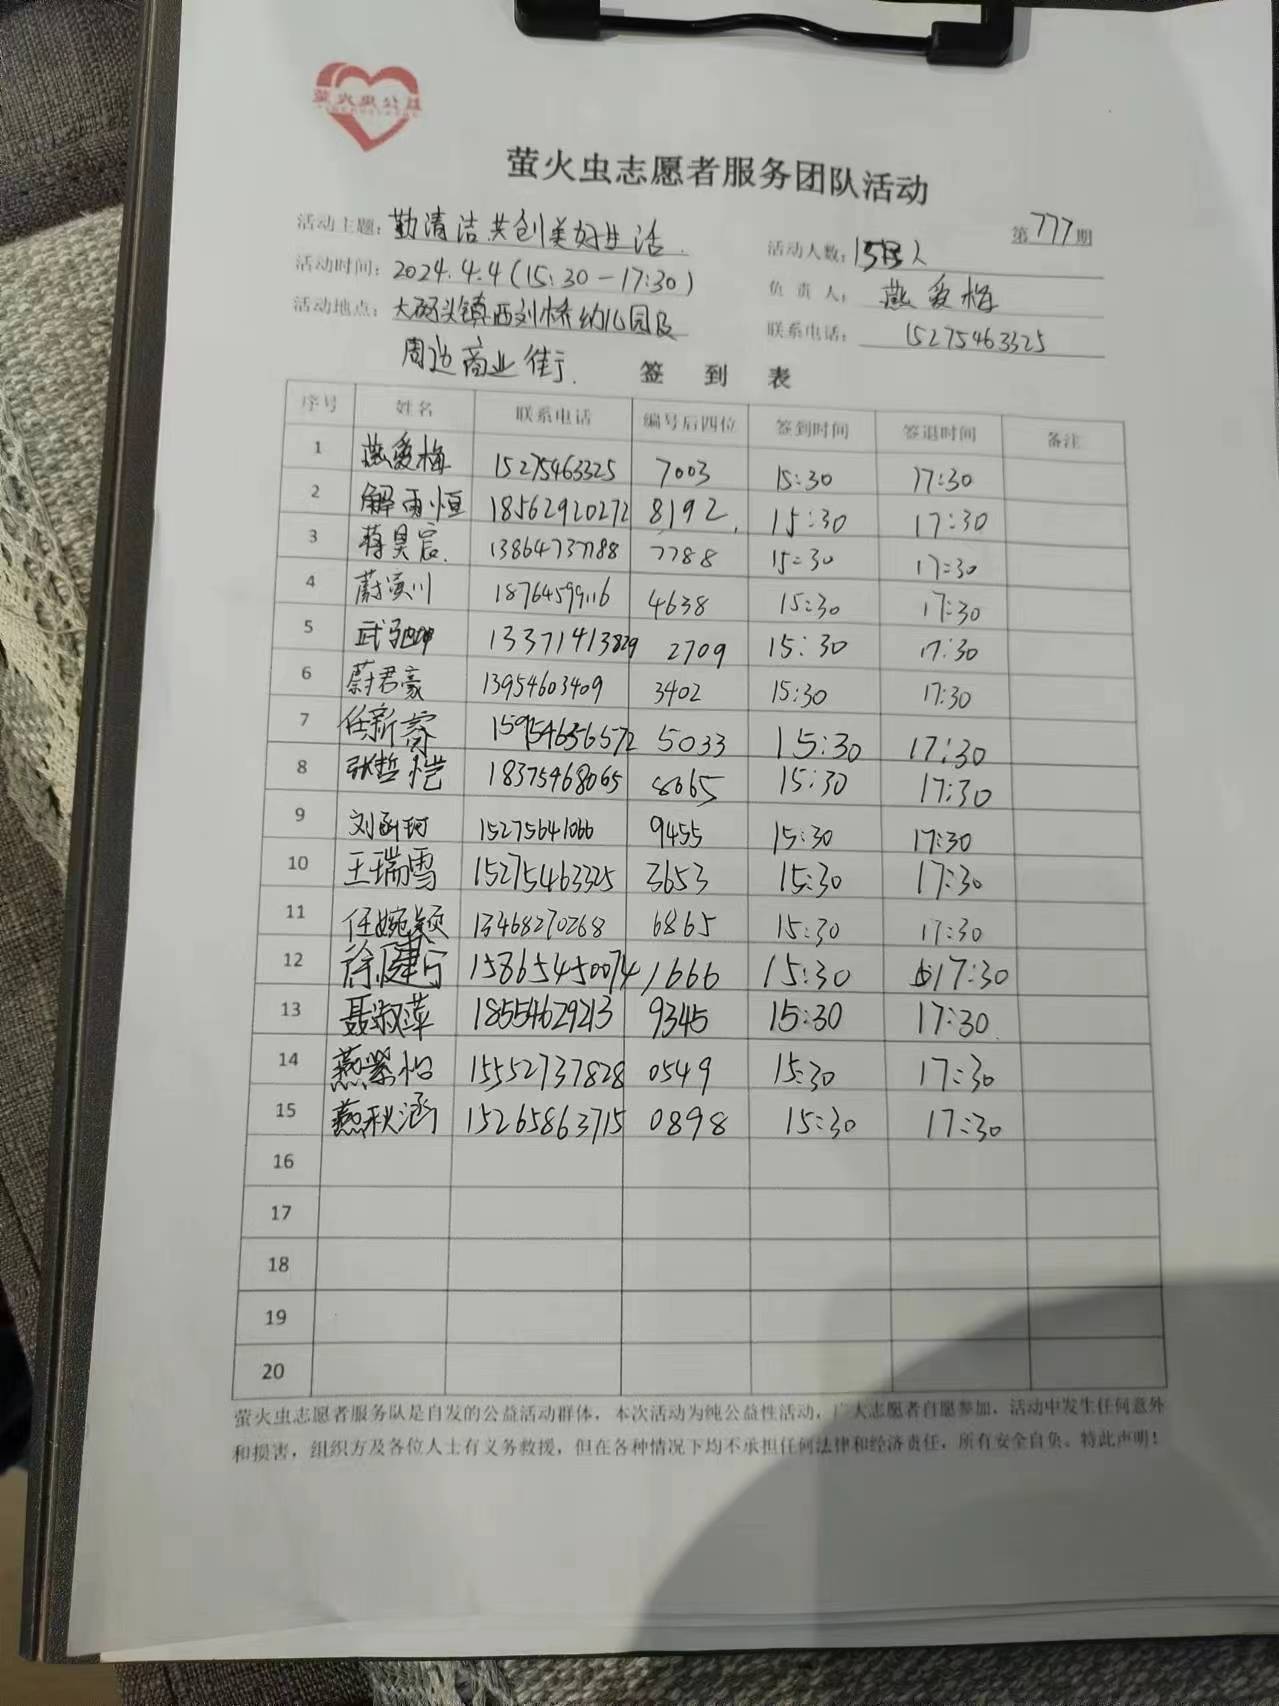 萤火虫公益
萤火虫志愿者服务团队活动
第777期
活动主题：勤清洁共创美好生活
活动人数：15人
活动时间：2024.4.4(15:30-17:30)
负责人：燕爱梅
活动地点：大码头镇西刘桥幼儿园及
联系电话：15275463325
周边商业街.
签到表
序号 姓名 联系电话 编号后四位 签到时间 签退时间 备注
1 燕爱梅 15275463325 7003 15:30 17:30
2 解雨恒 18562920272 8192 15:30 17:30
3 蒋昊宸 13864737788 7788 15:30 17:30
4 蔚滨川 18764599116 4638 15:30 17:30
5 武 13371413829 2709 15:30 17:30
6 蔚君豪 13954603409 3402 15:30 17:30
7 任新睿 15954656572 5033 15:30 17:30
8 张哲恺 18375468065 8065 15:30 17:30
9 刘函珂 15275641066 9455 15:30 17:30
10 王瑞雪 15275463325 3653 15:30 17:30
11 任婉颖 13468270268 6865 15:30 17:30
12 徐健宁 15865450074 1666 15:30 17:30
13 聂淑萍 18554629213 9345 15:30 17:30
14 燕紫怡 15552737828 0549 15:30 17:30
15 燕秋涵 15265863715 0898 15:30 17:30
16
17
18
19
20
萤火虫志愿者服务队是自发的公益活动群体，本次活动为纯公益性活动，广大志愿者自愿参加，活动中发生任何意外
和损害，组织方及各位人士有义务救援，但在各种情况下均不承担任何法律和经济责任，所有安全自负。特此声明！